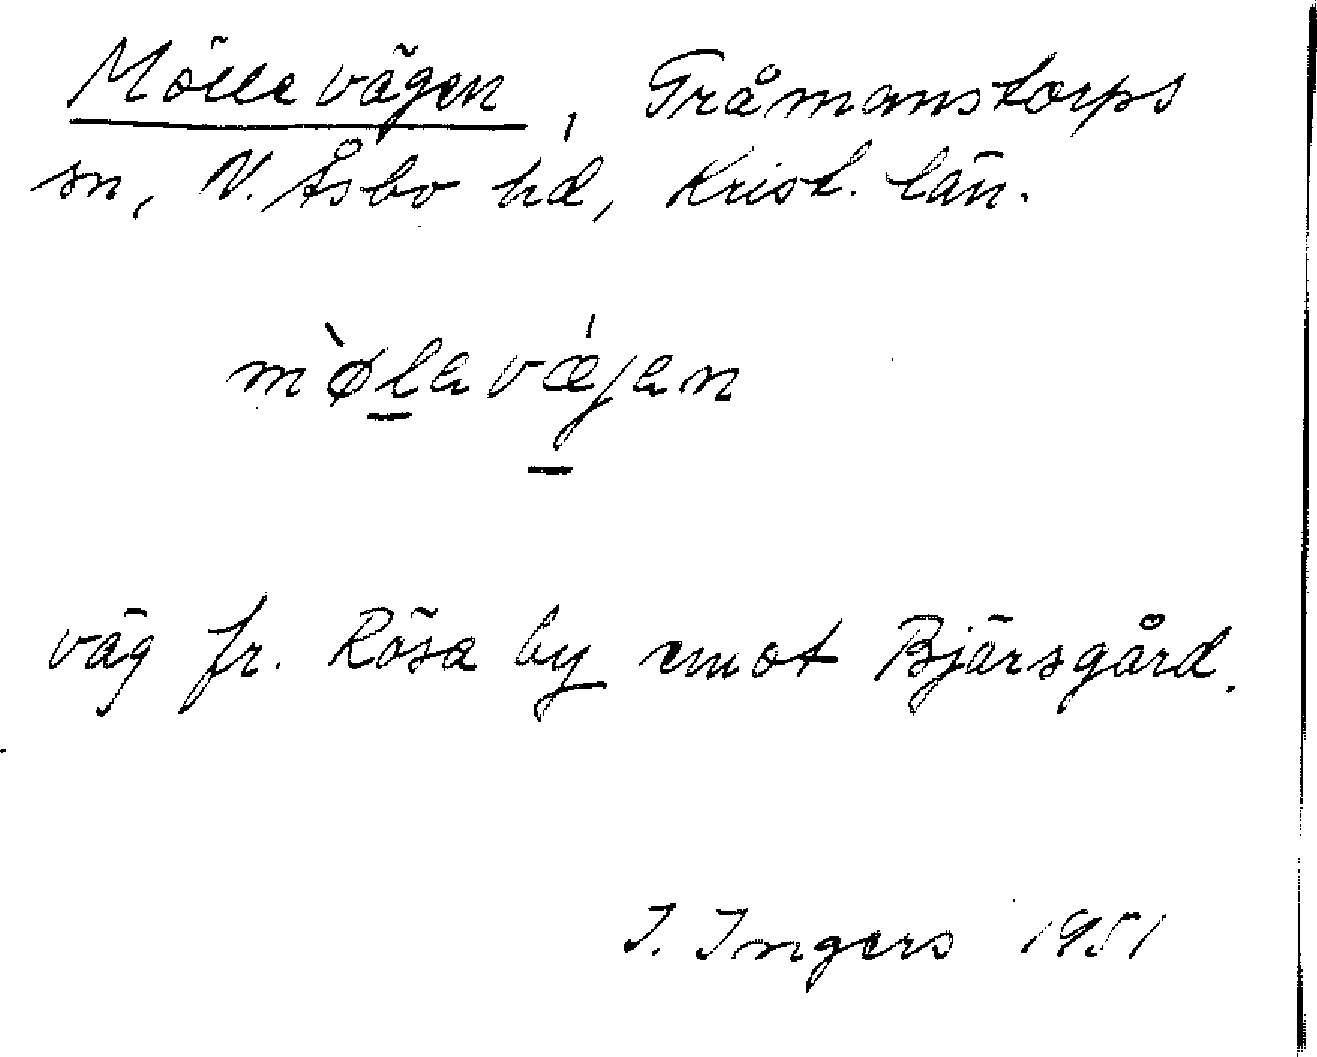 Möllevägen, Gråmanstorps
sn, N. Åsbo hd, Krist. län.
mø̀lavǽjan
väg fr. Rösa by emot Bjärsgård.
I. Ingers 1951